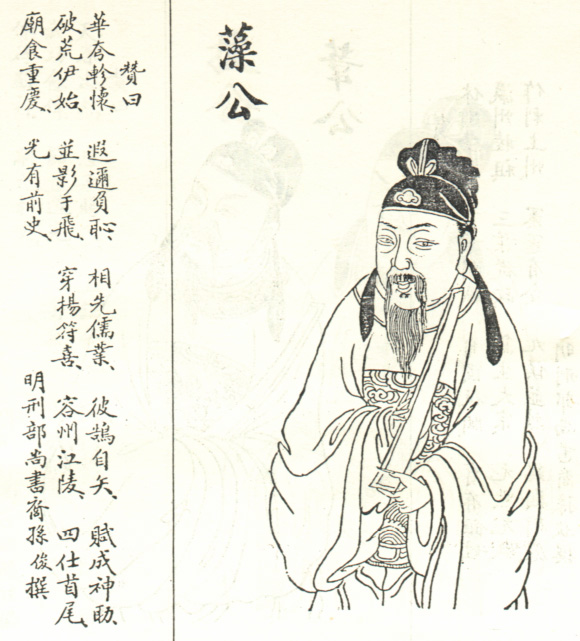 藻公
贊曰
華夸軫懷、遐邇負恥、相先儒業、彼鵠自矢、賦成神助、
破荒伊始、並影于飛、穿楊符喜、容州江陵、四仕首尾、
廟食重慶、光有前史、
明刑部尚書裔孫俊撰